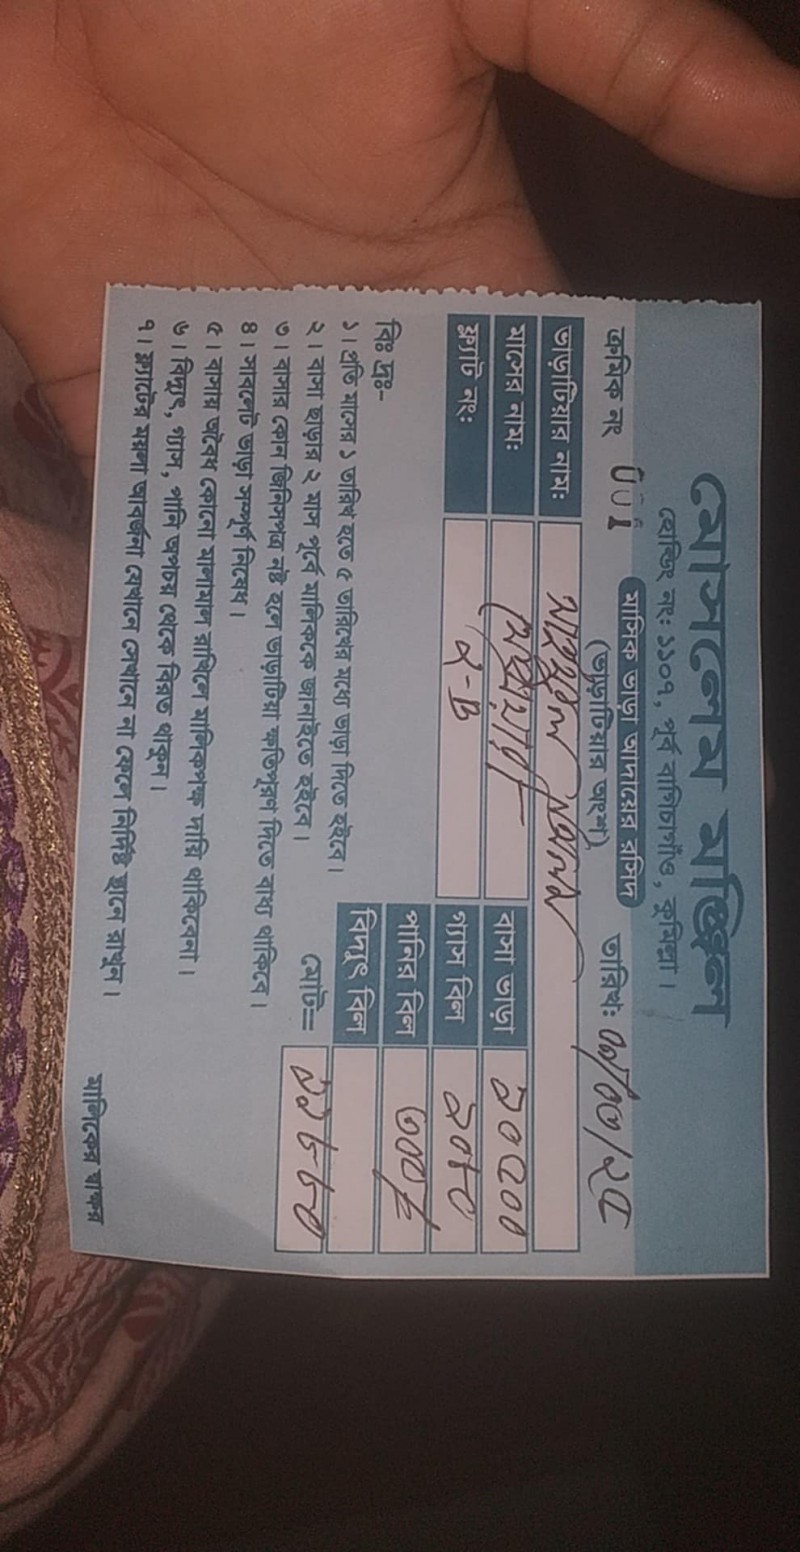 মোসলেম মঞ্জিল
হোল্ডিং নং: ১১০৭, পূর্ব বাগিচাগাঁও, কুমিল্লা।
মাসিক ভাড়া আদায়ের রসিদ
(ভাড়াটিয়ার অংশ)
ক্রমিক নং 001
তারিখঃ
ভাড়াটিয়ার নামঃ
মাসের নামঃ
ফ্ল্যাট নংঃ ২-B
বাসা ভাড়া ১০৫০০
গ্যাস বিল ১০৮০
পানির বিল ৩০০
বিদ্যুৎ বিল
মোট= ১১৮৮০
বিঃ দ্রঃ-
১। প্রতি মাসের ১ তারিখ হতে ৫ তারিখের মধ্যে ভাড়া দিতে হইবে।
২। বাসা ছাড়ার ২ মাস পূর্বে মালিককে জানাইতে হইবে।
৩। বাসার কোন জিনিসপত্র নষ্ট হলে ভাড়াটিয়া ক্ষতিপূরণ দিতে বাধ্য থাকিবে।
৪। সাবলেট ভাড়া সম্পূর্ণ নিষেধ।
৫। বাসায় অবৈধ কোনো মালামাল রাখিলে মালিকপক্ষ দায়ি থাকিবেনা।
৬। বিদ্যুৎ, গ্যাস, পানি অপচয় থেকে বিরত থাকুন।
৭। ফ্ল্যাটের ময়লা আবর্জনা যেখানে সেখানে না ফেলে নির্দিষ্ট স্থানে রাখুন।
মালিকের স্বাক্ষর